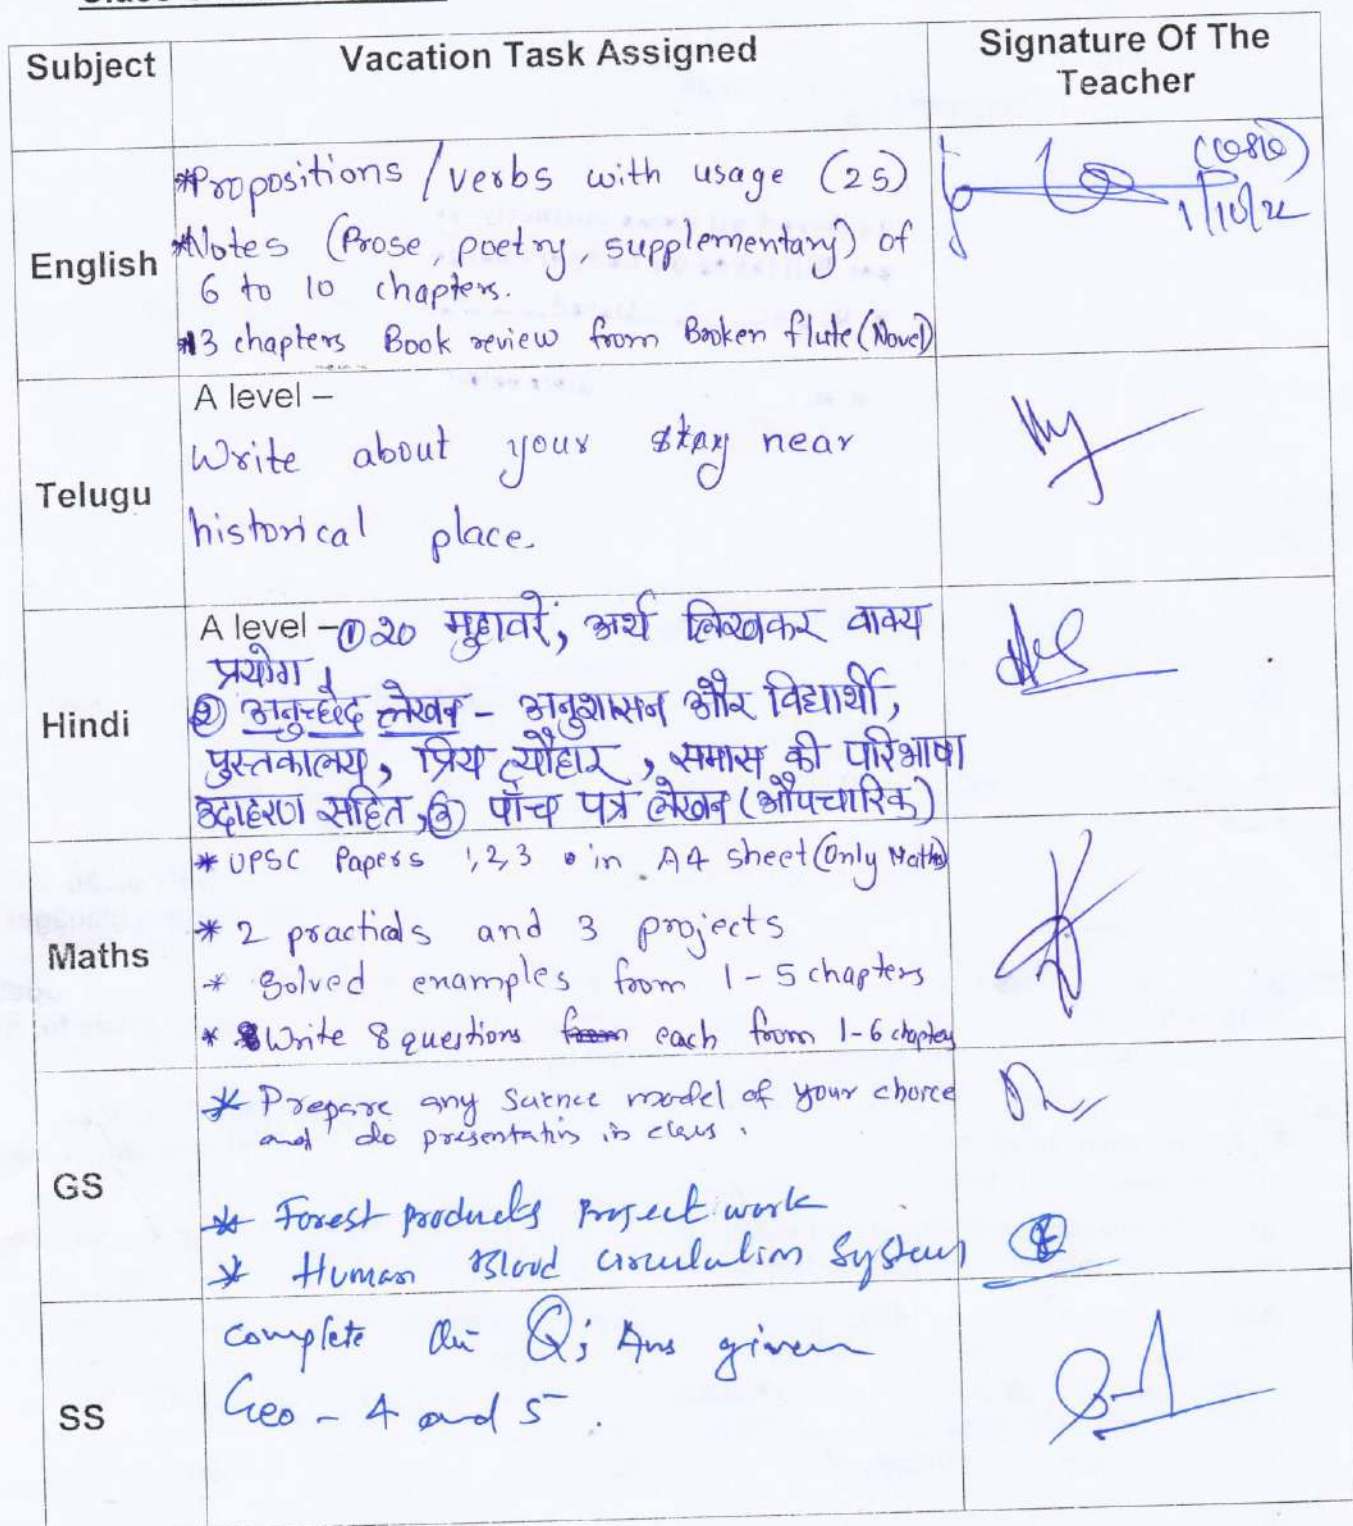 Subject Vacation Task Assigned Signature Of The
Teacher
English
*Propositions / verbs with usage (25)
*Notes (Prose, poetry, supplementary) of
6 to 10 chapters.
*13 chapters Book review from Broken flute (Novel)
1/10/22
Telugu
A level –
Write about your stay near
historical place.
Hindi
A level – ① 20 मुहावरें, अर्थ लिखकर वाक्य
प्रयोग।
② अनुच्छेद लेखन - अनुशासन और विद्यार्थी,
पुस्तकालय, प्रिय त्यौहार, समास की परिभाषा
उदाहरण सहित, ③ पाँच पत्र लेखन (औपचारिक)
Maths
* UPSC Papers 1,2,3 in A4 sheet (Only Maths)
* 2 practicals and 3 projects
* Solved examples from 1-5 chapters
* Write 8 questions each from 1-6 chapters
GS
* Prepare any Science model of your choice
and do presentation in class.
* Forest products Project work
* Human Blood circulation System
SS
complete the Q; Ans given
Geo - 4 and 5.